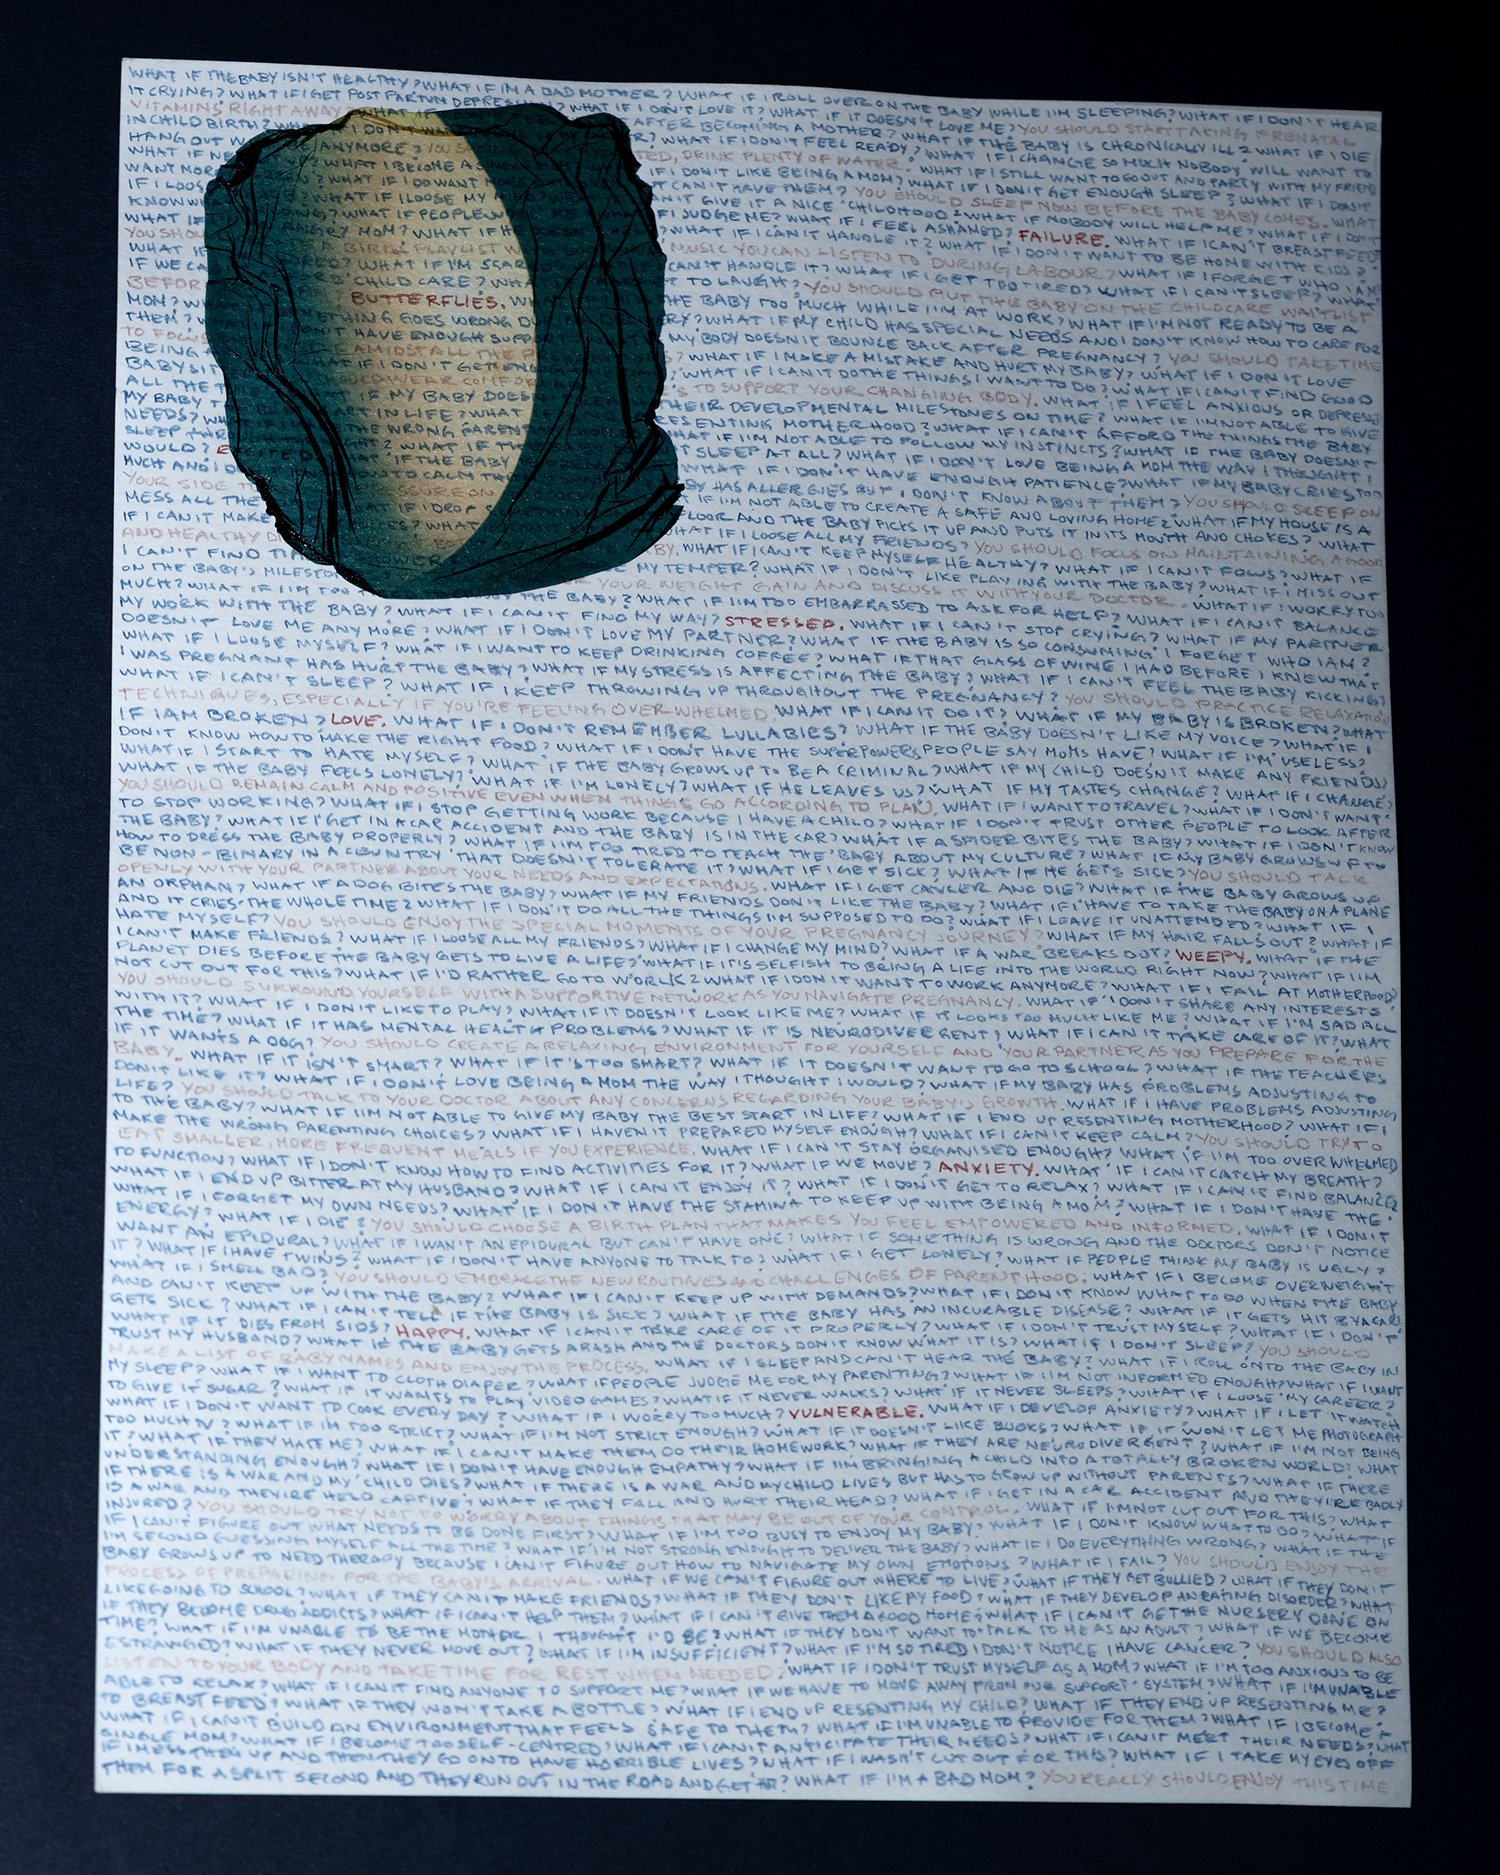 WHAT IF THE BABY ISN'T HEALTHY? WHAT IF I'M A BAD MOTHER? WHAT IF I ROLL OVER ON THE BABY WHILE I'M SLEEPING? WHAT IF I DON'T HEAR
IT CRYING? WHAT IF I GET POST PARTUM DEPRESSION? WHAT IF I DON'T LOVE IT? WHAT IF IT DOESN'T LOVE ME? YOU SHOULD START TAKING PRENATAL
VITAMINS RIGHT AWAY WHAT IF AFTER BECOMING A MOTHER? WHAT IF THE BABY IS CHRONICALLY ILL? WHAT IF I DIE
IN CHILD BIRTH? I DON'T WHAT IF I DON'T FEEL READY? WHAT IF I CHANGE SO MUCH NOBODY WILL WANT TO
HANG OUT ANYMORE? DRINK PLENTY OF WATER. WHAT IF I STILL WANT TO GO OUT AND PARTY WITH MY FRIENDS
WHAT IF I BECOME A IF I DON'T LIKE BEING A MOM? WHAT IF I DON'T GET ENOUGH SLEEP? WHAT IF I DON'T
WANT MORE WHAT IF I DO WANT MORE CAN'T HAVE THEM? YOU SHOULD SLEEP NOW BEFORE THE BABY COMES. WHAT
IF I LOOSE WHAT IF I LOOSE MY CAN'T GIVE IT A NICE CHILDHOOD? WHAT IF NOBODY WILL HELP ME? WHAT IF I DON'T
KNOW WHAT IF PEOPLE IF I JUDGE ME? WHAT IF I FEEL ASHAMED? FAILURE. WHAT IF I CAN'T BREAST FEED?
WHAT IF MOM? WHAT IF WHAT IF I CAN'T HANDLE IT? WHAT IF I DON'T WANT TO BE HOME WITH KIDS?
YOU SHOULD A BIRTH PLAYLIST MUSIC YOU CAN LISTEN TO DURING LABOUR? WHAT IF I FORGET WHO I AM
WHAT IF WHAT IF I'M SCAR CAN'T HANDLE IT? WHAT IF I GET TOO TIRED? WHAT IF I CAN'T SLEEP? WHAT
IF WE CAN CHILD CARE? TO LAUGH? YOU SHOULD PUT THE BABY ON THE CHILDCARE WAITLIST
BEFORE BUTTERFLIES. THE BABY TOO MUCH WHILE I'M AT WORK? WHAT IF I'M NOT READY TO BE A
MOM? GOES WRONG WHAT IF MY CHILD HAS SPECIAL NEEDS AND I DON'T KNOW HOW TO CARE FOR
THEM? HAVE ENOUGH MY BODY DOESN'T BOUNCE BACK AFTER PREGNANCY? YOU SHOULD TAKE TIME
TO FOCUS AMIDST ALL THE WHAT IF I MAKE A MISTAKE AND HURT MY BABY? WHAT IF I DON'T LOVE
BEING IF I DON'T GET WHAT IF I CAN'T DO THE THINGS I WANT TO DO? WHAT IF I CAN'T FIND GOOD
BABYSIT WEAR TO SUPPORT YOUR CHANGING BODY. WHAT IF I FEEL ANXIOUS OR DEPRESSED
ALL THE IF MY BABY DOES THEIR DEVELOPMENTAL MILESTONES ON TIME? WHAT IF I'M NOT ABLE TO GIVE
MY BABY START IN LIFE? WHAT RESENTING MOTHERHOOD? WHAT IF I CAN'T AFFORD THE THINGS THE BABY
NEEDS? THE WRONG WHAT IF I'M NOT ABLE TO FOLLOW MY INSTINCTS? WHAT IF THE BABY DOESN'T
SLEEP WHAT IF SLEEP AT ALL? WHAT IF I DON'T LOVE BEING A MOM THE WAY I THOUGHT I
WOULD? IF THE BABY WHAT IF I DON'T HAVE ENOUGH PATIENCE? WHAT IF MY BABY CRIES TOO
MUCH AND I TO CALM BABY HAS ALLERGIES BUT I DON'T KNOW ABOUT THEM? YOU SHOULD SLEEP ON
YOUR SIDE IF I'M NOT ABLE TO CREATE A SAFE AND LOVING HOME? WHAT IF MY HOUSE IS A
MESS ALL THE IF I DROP FLOOR AND THE BABY PICKS IT UP AND PUTS IT IN ITS MOUTH AND CHOKES? WHAT
IF I CAN'T MAKE WHAT WHAT IF I LOOSE ALL MY FRIENDS? YOU SHOULD FOCUS ON MAINTAINING A GOOD
AND HEALTHY BABY. WHAT IF I CAN'T KEEP MYSELF HEALTHY? WHAT IF I CAN'T FOCUS? WHAT IF
I CAN'T FIND MY TEMPER? WHAT IF I DON'T LIKE PLAYING WITH THE BABY? WHAT IF I MISS OUT
ON THE BABY'S MILESTONES YOUR WEIGHT GAIN AND DISCUSS IT WITH YOUR DOCTOR. WHAT IF I WORRY TOO
MUCH? WHAT IF I'M TOO THE BABY? WHAT IF I'M TOO EMBARRASSED TO ASK FOR HELP? WHAT IF I CAN'T BALANCE
MY WORK WITH THE BABY? WHAT IF I CAN'T FIND MY WAY? STRESSED. WHAT IF I CAN'T STOP CRYING? WHAT IF MY PARTNER
DOESN'T LOVE ME ANYMORE? WHAT IF I DON'T LOVE MY PARTNER? WHAT IF THE BABY IS SO CONSUMING I FORGET WHO I AM?
WHAT IF I LOOSE MYSELF? WHAT IF I WANT TO KEEP DRINKING COFFEE? WHAT IF THAT GLASS OF WINE I HAD BEFORE I KNEW THAT
I WAS PREGNANT HAS HURT THE BABY? WHAT IF MY STRESS IS AFFECTING THE BABY? WHAT IF I CAN'T FEEL THE BABY KICKING?
WHAT IF I CAN'T SLEEP? WHAT IF I KEEP THROWING UP THROUGHOUT THE PREGNANCY? YOU SHOULD PRACTICE RELAXATION
TECHNIQUES, ESPECIALLY IF YOU'RE FEELING OVERWHELMED. WHAT IF I CAN'T DO IT? WHAT IF MY BABY IS BROKEN? WHAT
IF I AM BROKEN? LOVE. WHAT IF I DON'T REMEMBER LULLABIES? WHAT IF THE BABY DOESN'T LIKE MY VOICE? WHAT IF I
DON'T KNOW HOW TO MAKE THE RIGHT FOOD? WHAT IF I DON'T HAVE THE SUPERPOWERS PEOPLE SAY MOMS HAVE? WHAT IF I'M USELESS?
WHAT IF I START TO HATE MYSELF? WHAT IF THE BABY GROWS UP TO BE A CRIMINAL? WHAT IF MY CHILD DOESN'T MAKE ANY FRIENDS?
WHAT IF THE BABY FEELS LONELY? WHAT IF I'M LONELY? WHAT IF HE LEAVES US? WHAT IF MY TASTES CHANGE? WHAT IF I CHANGE?
YOU SHOULD REMAIN CALM AND POSITIVE EVEN WHEN THINGS GO ACCORDING TO PLAN. WHAT IF I WANT TO TRAVEL? WHAT IF I DON'T WANT
TO STOP WORKING? WHAT IF I STOP GETTING WORK BECAUSE I HAVE A CHILD? WHAT IF I DON'T TRUST OTHER PEOPLE TO LOOK AFTER
THE BABY? WHAT IF I GET IN A CAR ACCIDENT AND THE BABY IS IN THE CAR? WHAT IF A SPIDER BITES THE BABY? WHAT IF I DON'T KNOW
HOW TO DRESS THE BABY PROPERLY? WHAT IF I'M TOO TIRED TO TEACH THE BABY ABOUT MY CULTURE? WHAT IF MY BABY GROWS UP TO
BE NON-BINARY IN A COUNTRY THAT DOESN'T TOLERATE IT? WHAT IF I GET SICK? WHAT IF HE GETS SICK? YOU SHOULD TALK
OPENLY WITH YOUR PARTNER ABOUT YOUR NEEDS AND EXPECTATIONS. WHAT IF I GET CANCER AND DIE? WHAT IF THE BABY GROWS UP
AN ORPHAN? WHAT IF A DOG BITES THE BABY? WHAT IF MY FRIENDS DON'T LIKE THE BABY? WHAT IF I HAVE TO TAKE THE BABY ON A PLANE
AND IT CRIES THE WHOLE TIME? WHAT IF I DON'T DO ALL THE THINGS I'M SUPPOSED TO DO? WHAT IF I LEAVE IT UNATTENDED? WHAT IF I
HATE MYSELF? YOU SHOULD ENJOY THE SPECIAL MOMENTS OF YOUR PREGNANCY JOURNEY? WHAT IF MY HAIR FALLS OUT? WHAT IF
I CAN'T MAKE FRIENDS? WHAT IF I LOOSE ALL MY FRIENDS? WHAT IF I CHANGE MY MIND? WHAT IF A WAR BREAKS OUT? WEEPY. WHAT IF THE
PLANET DIES BEFORE THE BABY GETS TO LIVE A LIFE? WHAT IF IT'S SELFISH TO BRING A LIFE INTO THE WORLD RIGHT NOW? WHAT IF I'M
NOT CUT OUT FOR THIS? WHAT IF I'D RATHER GO TO WORK? WHAT IF I DON'T WANT TO WORK ANYMORE? WHAT IF I FAIL AT MOTHERHOOD?
YOU SHOULD SURROUND YOURSELF WITH A SUPPORTIVE NETWORK AS YOU NAVIGATE PREGNANCY. WHAT IF I DON'T SHARE ANY INTERESTS
WITH IT? WHAT IF I DON'T LIKE TO PLAY? WHAT IF IT DOESN'T LOOK LIKE ME? WHAT IF IT LOOKS TOO MUCH LIKE ME? WHAT IF I'M SAD ALL
THE TIME? WHAT IF IT HAS MENTAL HEALTH PROBLEMS? WHAT IF IT IS NEURODIVERGENT? WHAT IF I CAN'T TAKE CARE OF IT? WHAT
IF IT WANTS A DOG? YOU SHOULD CREATE A RELAXING ENVIRONMENT FOR YOURSELF AND YOUR PARTNER AS YOU PREPARE FOR THE
BABY. WHAT IF IT ISN'T SMART? WHAT IF IT'S TOO SMART? WHAT IF IT DOESN'T WANT TO GO TO SCHOOL? WHAT IF THE TEACHERS
DON'T LIKE IT? WHAT IF I DON'T LOVE BEING A MOM THE WAY I THOUGHT I WOULD? WHAT IF MY BABY HAS PROBLEMS ADJUSTING TO
LIFE? YOU SHOULD TALK TO YOUR DOCTOR ABOUT ANY CONCERNS REGARDING YOUR BABY'S GROWTH. WHAT IF I HAVE PROBLEMS ADJUSTING
TO THE BABY? WHAT IF I'M NOT ABLE TO GIVE MY BABY THE BEST START IN LIFE? WHAT IF I END UP RESENTING MOTHERHOOD? WHAT IF I
MAKE THE WRONG PARENTING CHOICES? WHAT IF I HAVEN'T PREPARED MYSELF ENOUGH? WHAT IF I CAN'T KEEP CALM? YOU SHOULD TRY TO
EAT SMALLER, MORE FREQUENT MEALS IF YOU EXPERIENCE. WHAT IF I CAN'T STAY ORGANISED ENOUGH? WHAT IF I'M TOO OVERWHELMED
TO FUNCTION? WHAT IF I DON'T KNOW HOW TO FIND ACTIVITIES FOR IT? WHAT IF WE MOVE? ANXIETY. WHAT IF I CAN'T CATCH MY BREATH?
WHAT IF I END UP BITTER AT MY HUSBAND? WHAT IF I CAN'T ENJOY IT? WHAT IF I DON'T GET TO RELAX? WHAT IF I CAN'T FIND BALANCE?
WHAT IF I FORGET MY OWN NEEDS? WHAT IF I DON'T HAVE THE STAMINA TO KEEP UP WITH BEING A MOM? WHAT IF I DON'T HAVE THE
ENERGY? WHAT IF I DIE? YOU SHOULD CHOOSE A BIRTH PLAN THAT MAKES YOU FEEL EMPOWERED AND INFORMED. WHAT IF I DON'T
WANT AN EPIDURAL? WHAT IF I WAN'T AN EPIDURAL BUT CAN'T HAVE ONE? WHAT IF SOMETHING IS WRONG AND THE DOCTORS DON'T NOTICE
IT? WHAT IF I HAVE TWINS? WHAT IF I DON'T HAVE ANYONE TO TALK TO? WHAT IF I GET LONELY? WHAT IF PEOPLE THINK MY BABY IS UGLY?
WHAT IF I SMELL BAD? YOU SHOULD EMBRACE THE NEW ROUTINES AND CHALLENGES OF PARENTHOOD. WHAT IF I BECOME OVERWEIGHT
AND CAN'T KEEP UP WITH THE BABY? WHAT IF I CAN'T KEEP UP WITH DEMANDS? WHAT IF I DON'T KNOW WHAT TO DO WHEN THE BABY
GETS SICK? WHAT IF I CAN'T TELL IF THE BABY IS SICK? WHAT IF THE BABY HAS AN INCURABLE DISEASE? WHAT IF IT GETS HIT BY A CAR?
WHAT IF IT DIES FROM SIDS? HAPPY. WHAT IF I CAN'T TAKE CARE OF IT PROPERLY? WHAT IF I DON'T TRUST MYSELF? WHAT IF I DON'T
TRUST MY HUSBAND? WHAT IF THE BABY GETS A RASH AND THE DOCTORS DON'T KNOW WHAT IT IS? WHAT IF I DON'T SLEEP? YOU SHOULD
MAKE A LIST OF BABY NAMES AND ENJOY THE PROCESS. WHAT IF I SLEEP AND CAN'T HEAR THE BABY? WHAT IF I ROLL ONTO THE BABY IN
MY SLEEP? WHAT IF I WANT TO CLOTH DIAPER? WHAT IF PEOPLE JUDGE ME FOR MY PARENTING? WHAT IF I'M NOT INFORMED ENOUGH? WHAT IF I WANT
TO GIVE IT SUGAR? WHAT IF IT WANTS TO PLAY VIDEO GAMES? WHAT IF IT NEVER WALKS? WHAT IF IT NEVER SLEEPS? WHAT IF I LOOSE MY CAREER?
WHAT IF I DON'T WANT TO COOK EVERY DAY? WHAT IF I WORRY TOO MUCH? VULNERABLE. WHAT IF I DEVELOP ANXIETY? WHAT IF I LET IT WATCH
TOO MUCH TV? WHAT IF I'M TOO STRICT? WHAT IF I'M NOT STRICT ENOUGH? WHAT IF IT DOESN'T LIKE BOOKS? WHAT IF IT WON'T LET ME PHOTOGRAPH
IT? WHAT IF THEY HATE ME? WHAT IF I CAN'T MAKE THEM DO THEIR HOMEWORK? WHAT IF THEY ARE NEURODIVERGENT? WHAT IF I'M NOT BEING
UNDERSTANDING ENOUGH? WHAT IF I DON'T HAVE ENOUGH EMPATHY? WHAT IF I'M BRINGING A CHILD INTO A TOTALLY BROKEN WORLD? WHAT
IF THERE IS A WAR AND MY CHILD DIES? WHAT IF THERE IS A WAR AND MY CHILD LIVES BUT HAS TO GROW UP WITHOUT PARENTS? WHAT IF THERE
IS A WAR AND THEY'RE HELD CAPTIVE? WHAT IF THEY FALL AND HURT THEIR HEAD? WHAT IF I GET IN A CAR ACCIDENT AND THEY'RE BADLY
INJURED? YOU SHOULD TRY NOT TO WORRY ABOUT THINGS THAT MAY BE OUT OF YOUR CONTROL. WHAT IF I'M NOT CUT OUT FOR THIS? WHAT
IF I CAN'T FIGURE OUT WHAT NEEDS TO BE DONE FIRST? WHAT IF I'M TOO BUSY TO ENJOY MY BABY? WHAT IF I DON'T KNOW WHAT TO DO? WHAT IF
I'M SECOND GUESSING MYSELF ALL THE TIME? WHAT IF I'M NOT STRONG ENOUGH TO DELIVER THE BABY? WHAT IF I DO EVERYTHING WRONG? WHAT IF THE
BABY GROWS UP TO NEED THERAPY BECAUSE I CAN'T FIGURE OUT HOW TO NAVIGATE MY OWN EMOTIONS? WHAT IF I FAIL? YOU SHOULD ENJOY THE
PROCESS OF PREPARING FOR THE BABY'S ARRIVAL. WHAT IF WE CAN'T FIGURE OUT WHERE TO LIVE? WHAT IF THEY GET BULLIED? WHAT IF THEY DON'T
LIKE GOING TO SCHOOL? WHAT IF THEY CAN'T MAKE FRIENDS? WHAT IF THEY DON'T LIKE MY FOOD? WHAT IF THEY DEVELOP AN EATING DISORDER? WHAT
IF THEY BECOME DRUG ADDICTS? WHAT IF I CAN'T HELP THEM? WHAT IF I CAN'T GIVE THEM A GOOD HOME? WHAT IF I CAN'T GET THE NURSERY DONE ON
TIME? WHAT IF I'M UNABLE TO BE THE MOTHER I THOUGHT I'D BE? WHAT IF THEY DON'T WANT TO TALK TO ME AS AN ADULT? WHAT IF WE BECOME
ESTRANGED? WHAT IF THEY NEVER MOVE OUT? WHAT IF I'M INSUFFICIENT? WHAT IF I'M SO TIRED I DON'T NOTICE I HAVE CANCER? YOU SHOULD ALSO
LISTEN TO YOUR BODY AND TAKE TIME FOR REST WHEN NEEDED. WHAT IF I DON'T TRUST MYSELF AS A MOM? WHAT IF I'M TOO ANXIOUS TO BE
ABLE TO RELAX? WHAT IF I CAN'T FIND ANYONE TO SUPPORT ME? WHAT IF WE HAVE TO MOVE AWAY FROM OUR SUPPORT SYSTEM? WHAT IF I'M UNABLE
TO BREAST FEED? WHAT IF THEY WON'T TAKE A BOTTLE? WHAT IF I END UP RESENTING MY CHILD? WHAT IF THEY END UP RESENTING ME?
WHAT IF I CAN'T BUILD AN ENVIRONMENT THAT FEELS SAFE TO THEM? WHAT IF I'M UNABLE TO PROVIDE FOR THEM? WHAT IF I BECOME A
SINGLE MOM? WHAT IF I BECOME TOO SELF-CENTRED? WHAT IF I CAN'T ANTICIPATE THEIR NEEDS? WHAT IF I CAN'T MEET THEIR NEEDS? WHAT
IF I MESS THEM UP AND THEN THEY GO ON TO HAVE HORRIBLE LIVES? WHAT IF I WASN'T CUT OUT FOR THIS? WHAT IF I TAKE MY EYES OFF
THEM FOR A SPLIT SECOND AND THEY RUN OUT IN THE ROAD AND GET HIT? WHAT IF I'M A BAD MOM? YOU REALLY SHOULD ENJOY THIS TIME